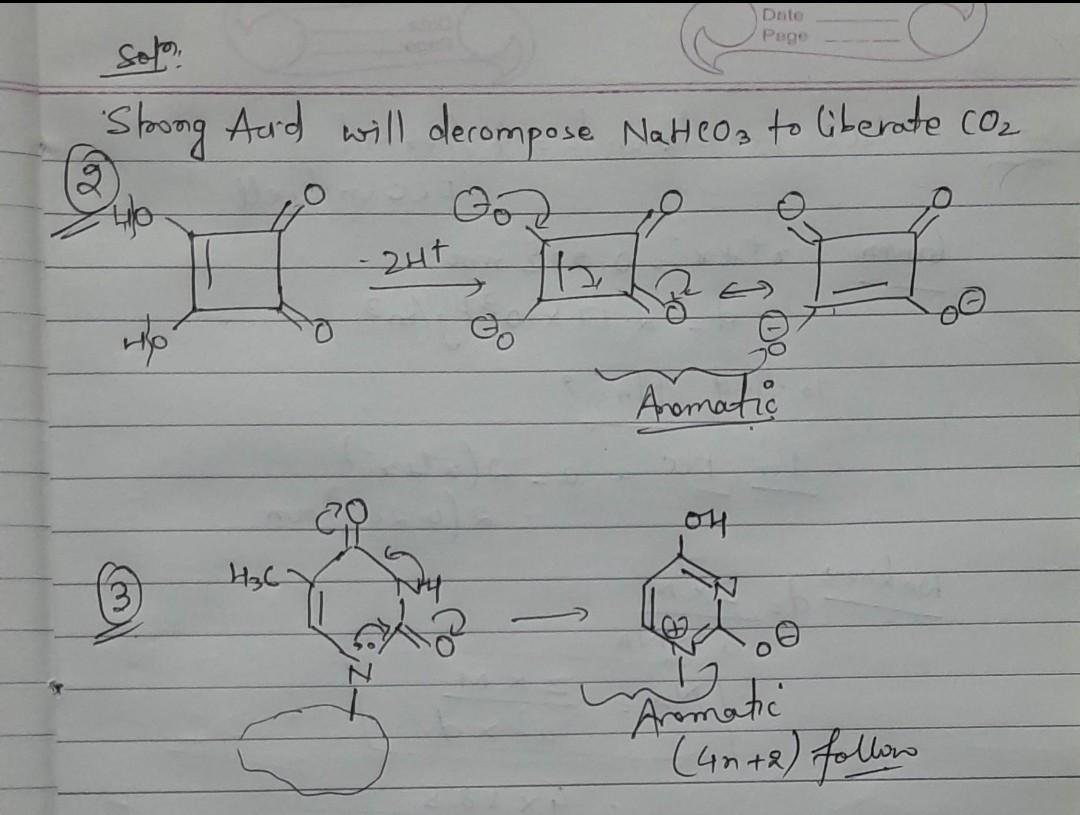 Date
Page
Soln:
Strong Acid will decompose NaHCO3 to liberate CO2
2
HO O ⊖O O O O
-2H+ ↔
HO O ⊖O O ⊖O O⊖
Aromatic
O OH
3 H3C NH N
O ⊕ O⊖
N N
Aromatic
(4n+2) follow